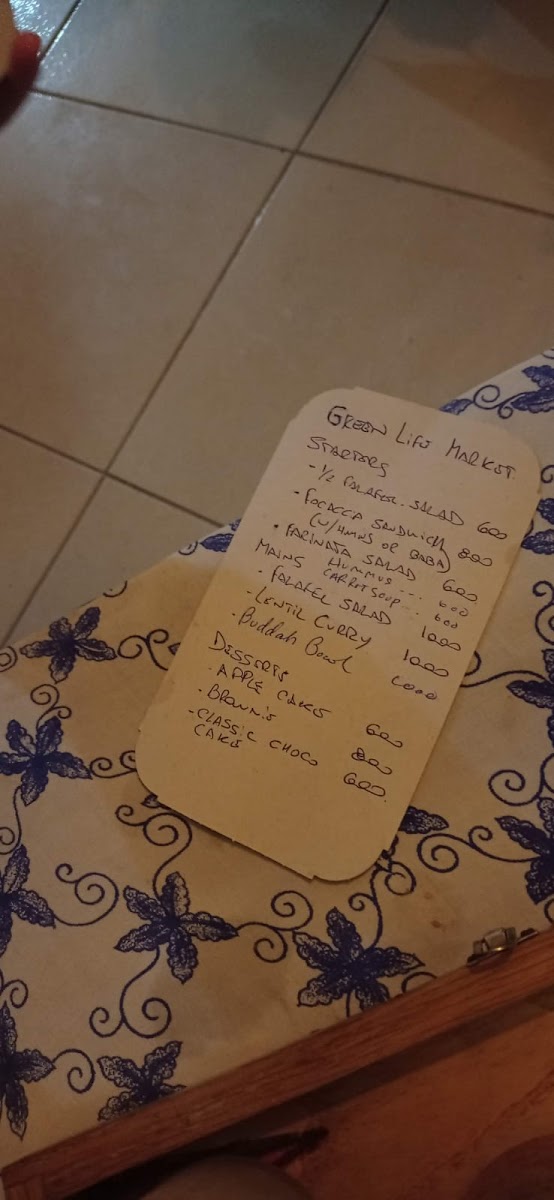 GREEN LIFE MARKET
STARTERS
- 1/2 FALAFEL SALAD 600
- FOCACCIA SANDWICH 800
(W/HMMS OR BABA)
• FARINATA SALAD 600
HUMMUS ... 600
CARROT SOUP .. 600
MAINS
- FALAFEL SALAD 1000
- LENTIL CURRY 1000
- Buddah Bowl 1000
DESSERTS
- APPLE CAKES 600
- BROWNIS 800
- CLASSIC CHOCO 600.
CAKES